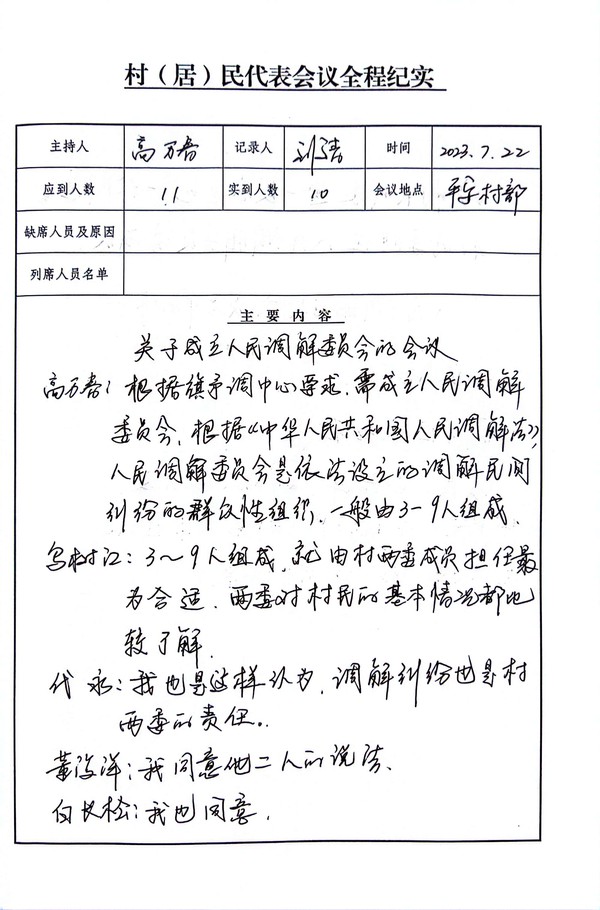 村（居）民代表会议全程纪实
主持人 高万春 记录人 时间 2023.7.22
应到人数 11 实到人数 10 会议地点 村部
缺席人员及原因
列席人员名单
主要内容
关于成立人民调解委员会的会议
高万春：根据旗矛调中心要求，需成立人民调解
委员会，根据《中华人民共和国人民调解法》，
人民调解委员会是依法设立的调解民间
纠纷的群众性组织，一般由3-9人组成，
乌树江：3～9人组成，就由村两委成员担任最
为合适，两委对村民的基本情况都比
较了解，
代永：我也是这样认为，调解纠纷也是村
两委的责任。
董海洋：我同意他二人的说法、
白长松：我也同意，